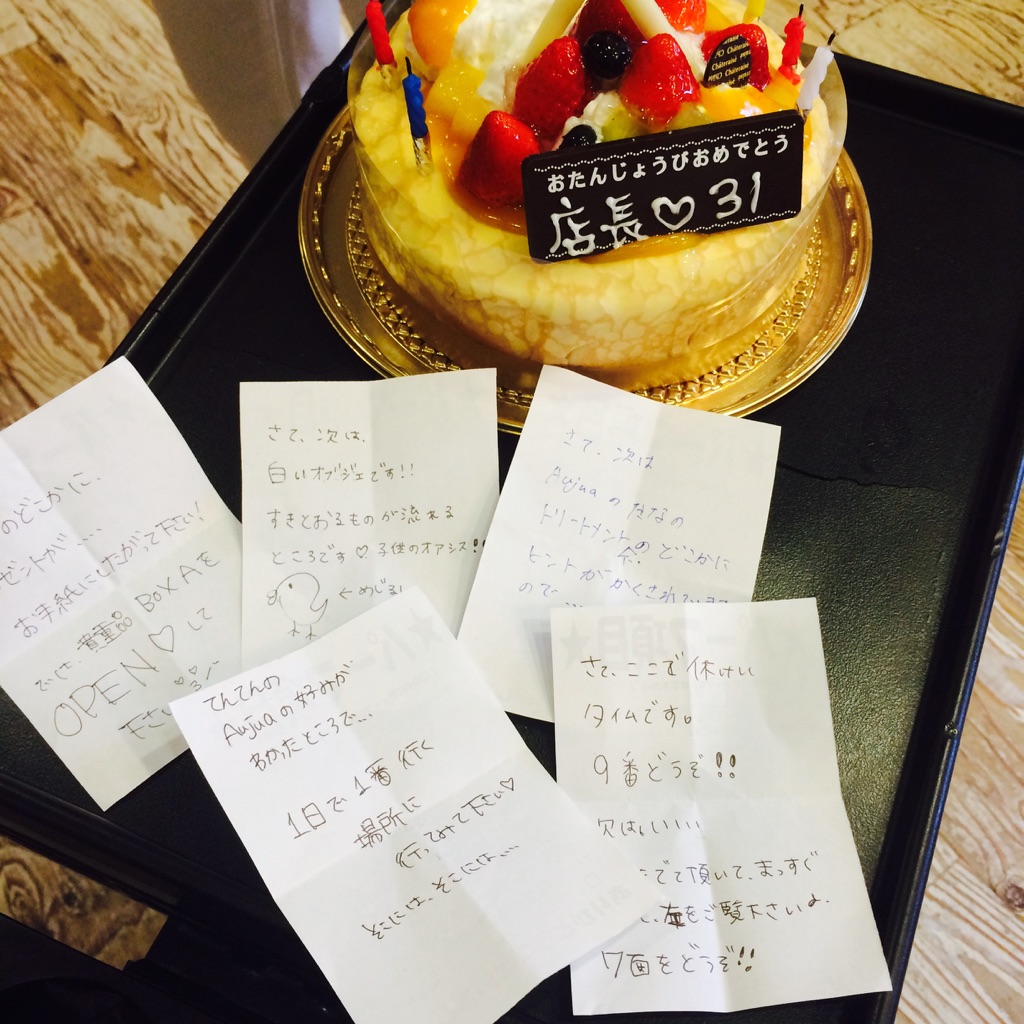 Châteraisé
おたんじょうびおめでとう
店長♡31
のどこかに、
ゼントが…
お手紙にしたがって下さい!
でゎ、貴重品 BOX Aを
OPEN♡して
下さい
さて、次は、
白いオブジェです!!
すきとおるものが流れる
ところです♡子供のオアシス!!
←めじるし
さて、次は
Aujuaのななの
トリートメントのどこかに
ヒントが かくされています
ので
てんてんの
Aujuaの好みが
わかったところで…
1日で、1番 行く
場所に
行ってみて下さい♡
そこには、そこには…
さて、ここで休けい
タイムです。
9番どうぞ!!
次はぃぃぃぃ
でて頂いて、まっすぐ
をご覧下さいよ。
7面をどうぞ!!